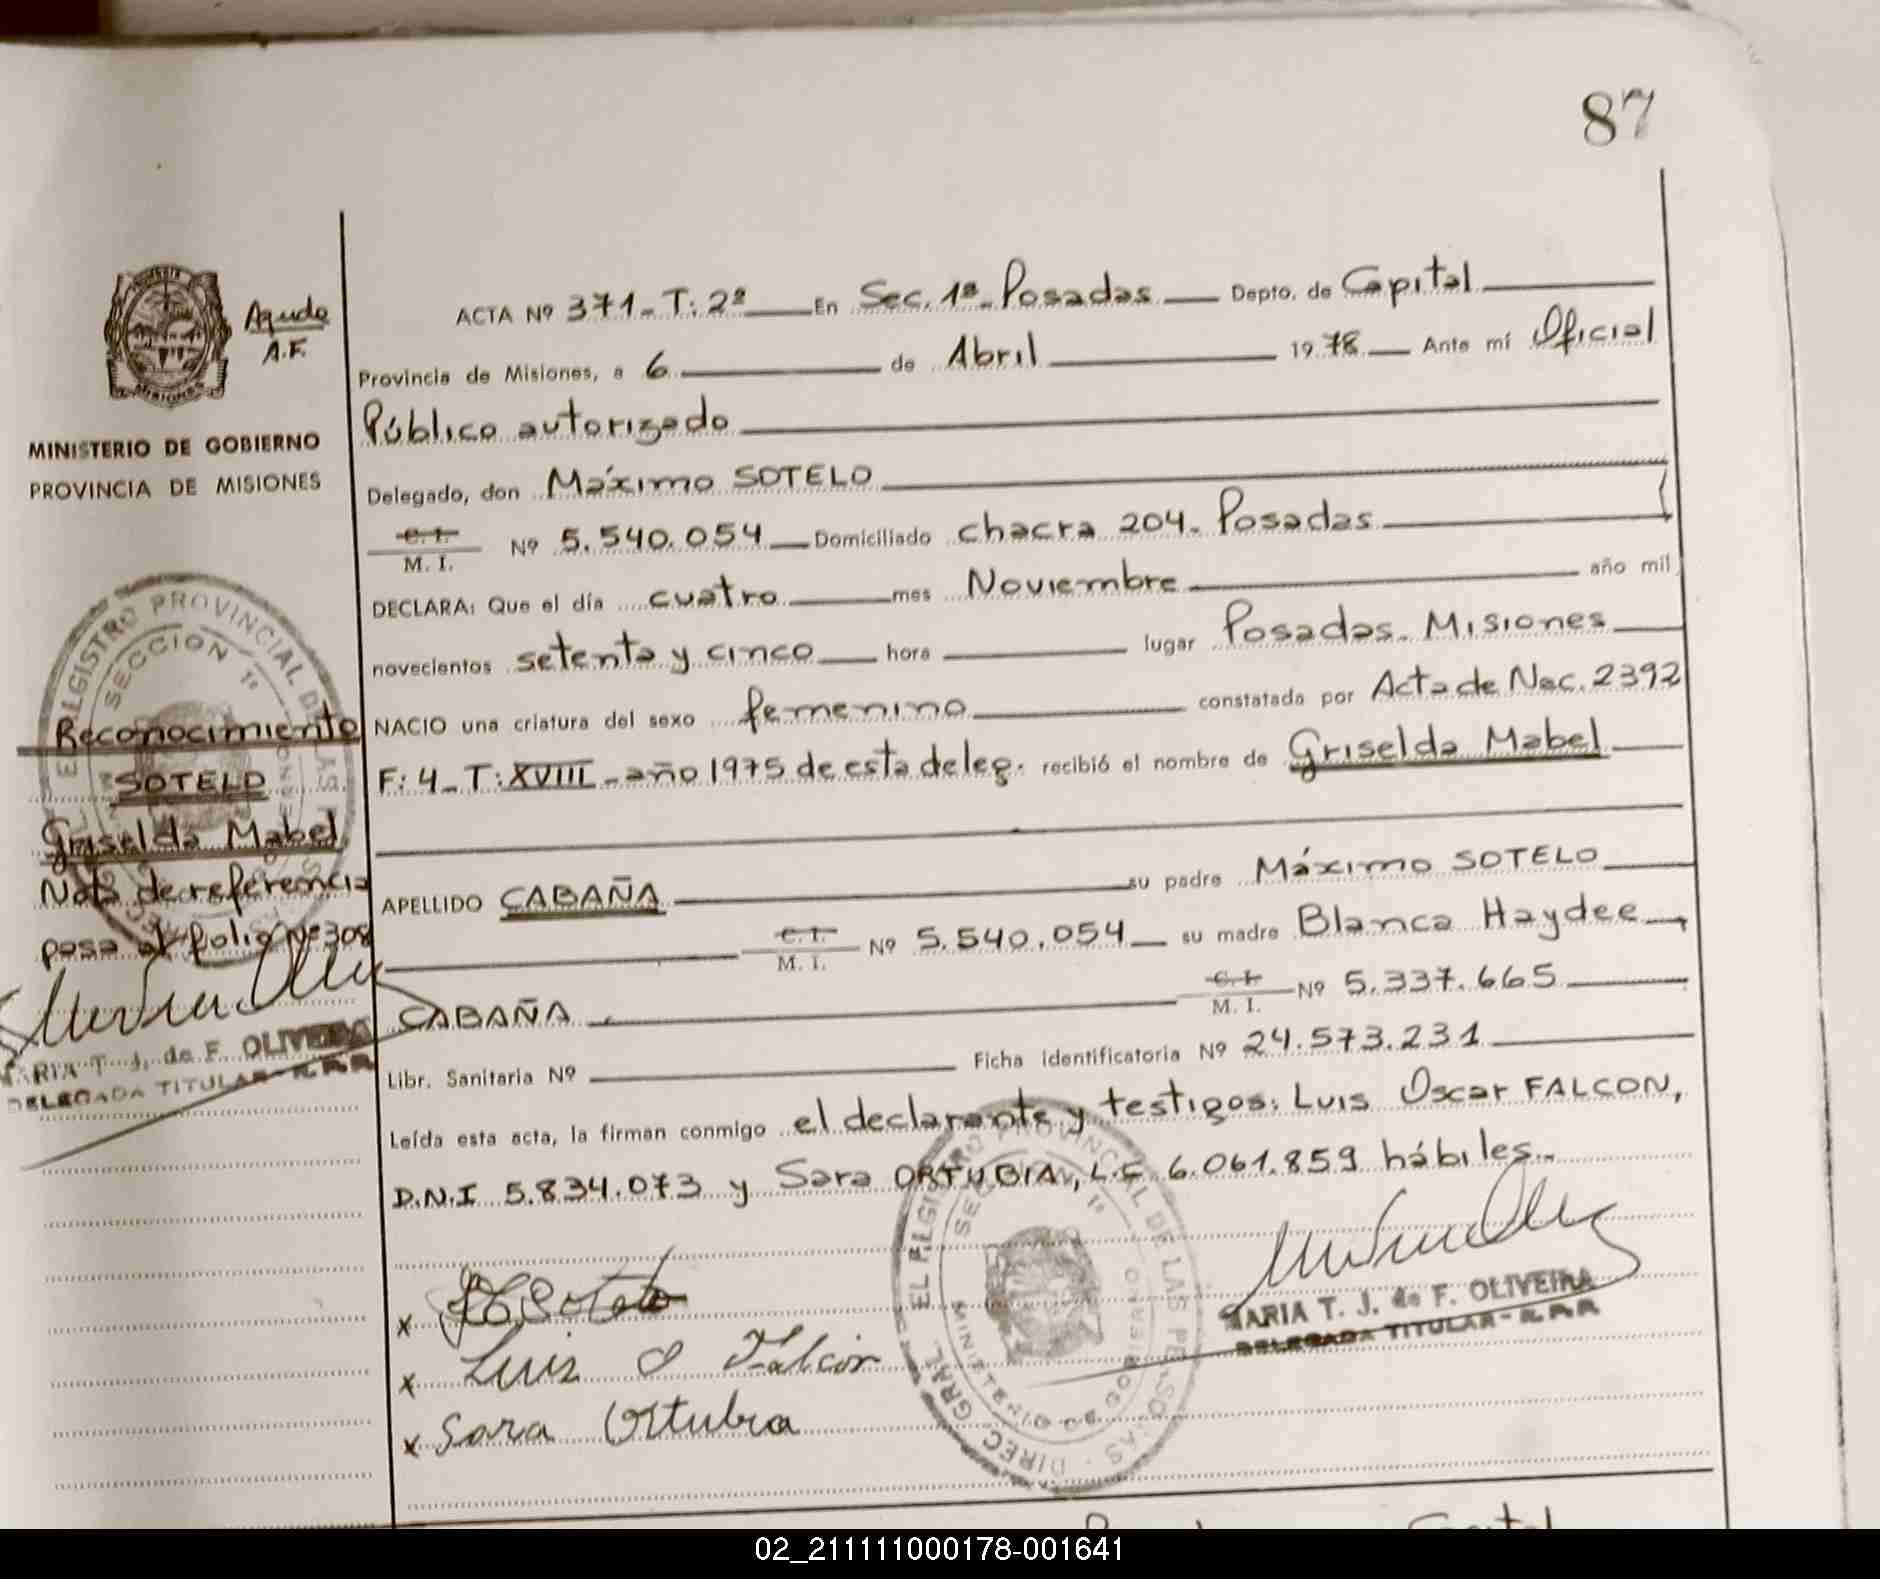 87
ACTA Nº 371_ T: 2º En Sec. 1ª_ Posadas Depto. de Capital
Provincia de Misiones, a 6 de Abril 1978 Ante mí Oficial
Público autorizado
Delegado, don Máximo SOTELO
C. I.
M. I. Nº 5.540.054 Domiciliado chacra 204_ Posadas
DECLARA: Que el día cuatro mes Noviembre año mil
novecientos setenta y cinco hora lugar Posadas_ Misiones
NACIO una criatura del sexo femenino constatada por Acta de Nac. 2392
F: 4_ T: XVIII_ año 1975 de esta deleg. recibió el nombre de Griselda Mabel
APELLIDO CABAÑA su padre Máximo SOTELO
C. I.
M. I. Nº 5.540.054 su madre Blanca Haydee
CABAÑA
C. I.
M. I. Nº 5.337.665
Libr. Sanitaria Nº Ficha identificatoria Nº 24.573.231
Leída esta acta, la firman conmigo el declarante y testigos: Luis Oscar FALCON,
D.N.I 5.834.073 y Sara ORTUBIA, L.C 6.061.859 hábiles._
x Sotelo
x Luis O Falcon
x Sara Ortubia
MARIA T. J. de F. OLIVEIRA
DELEGADA TITULAR - R.P.P.
DIREC. GRAL. EL REGISTRO PROVINCIAL DE LAS PERSONAS
SECCION 1º
MINISTERIO DE GOBIERNO
MISIONES
Aguda
A.F.
MINISTERIO DE GOBIERNO
PROVINCIA DE MISIONES
EL REGISTRO PROVINCIAL DE LAS
SECCION 1º
Reconocimiento
SOTELO
Griselda Mabel
Nota de referencia
pasa al folio Nº 308
MARIA T. J. de F. OLIVEIRA
DELEGADA TITULAR - R.P.P.
Capital
02_211111000178-001641